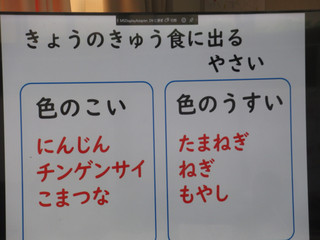 きょうのきゅう食に出る
やさい
色のこい
にんじん
チンゲンサイ
こまつな
色のうすい
たまねぎ
ねぎ
もやし